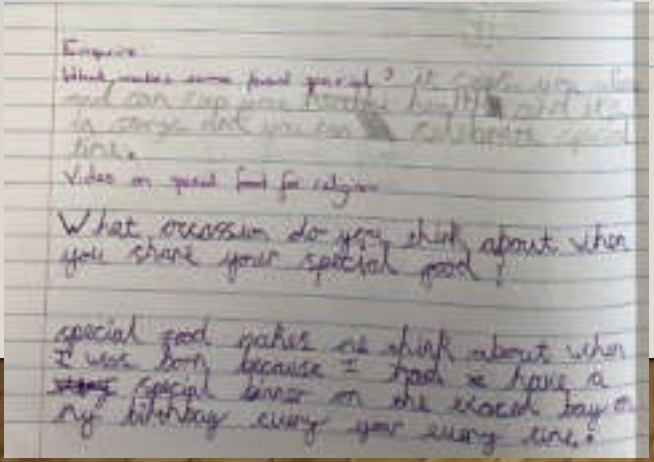 Enquire
What makes some food special? it keeps you alive
and can keep you healthy and it's
in songs and you can celebrate special
time.
Video on special food for religion
What occassion do you think about when
you share your special food?
special food makes me think about when
I was born because I had to have a
special dinner on the exaced bay of
my birthbay every year every time.